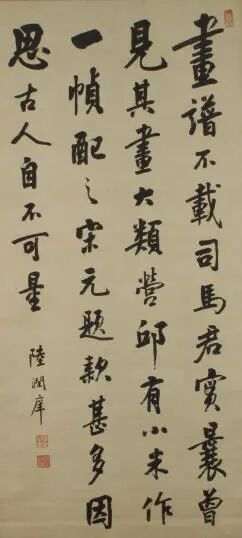 畫譜不載司馬君實曩曾
見其畫大類營邱有小米作
一幀配之宋元題款甚多因
思古人自不可量
陸潤庠